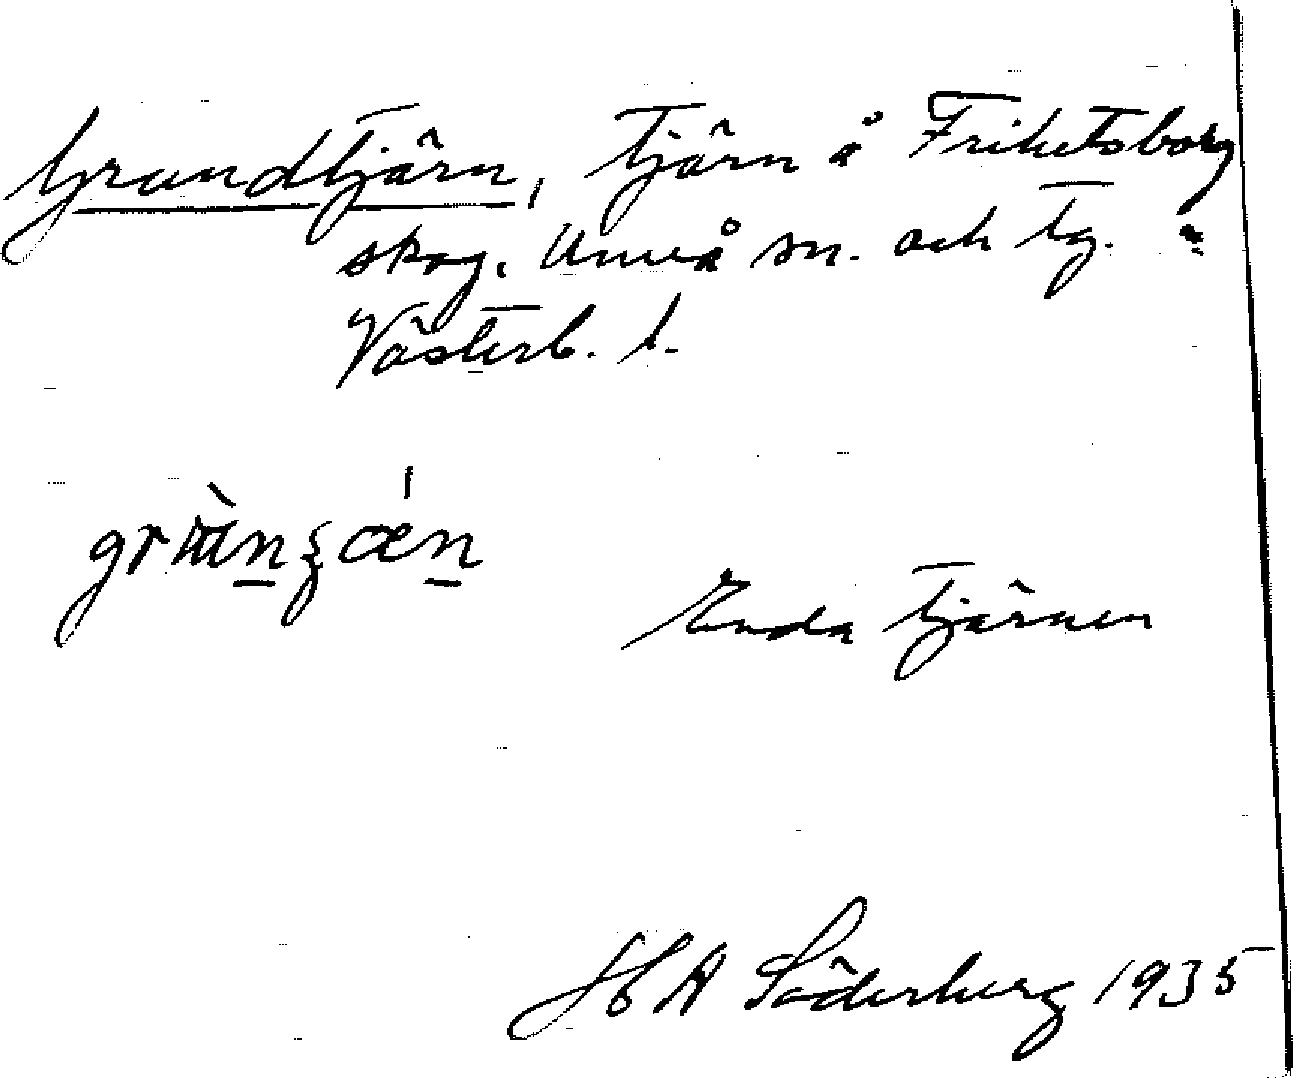 Grundtjärn, tjärn å Frihetsborg
skog. Umeå sn. och tg.
Västerb. l.
Enda tjärnen
H A Söderberg 1935